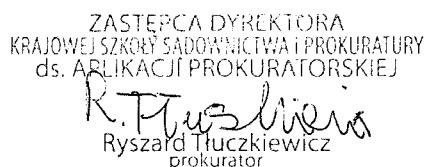 ZASTĘPCA DYREKTORA
KRAJOWEJ SZKOŁY SĄDOWNICTWA I PROKURATURY
ds. APLIKACJI PROKURATORSKIEJ
R. Tłuczkiewicz
Ryszard Tłuczkiewicz
prokurator